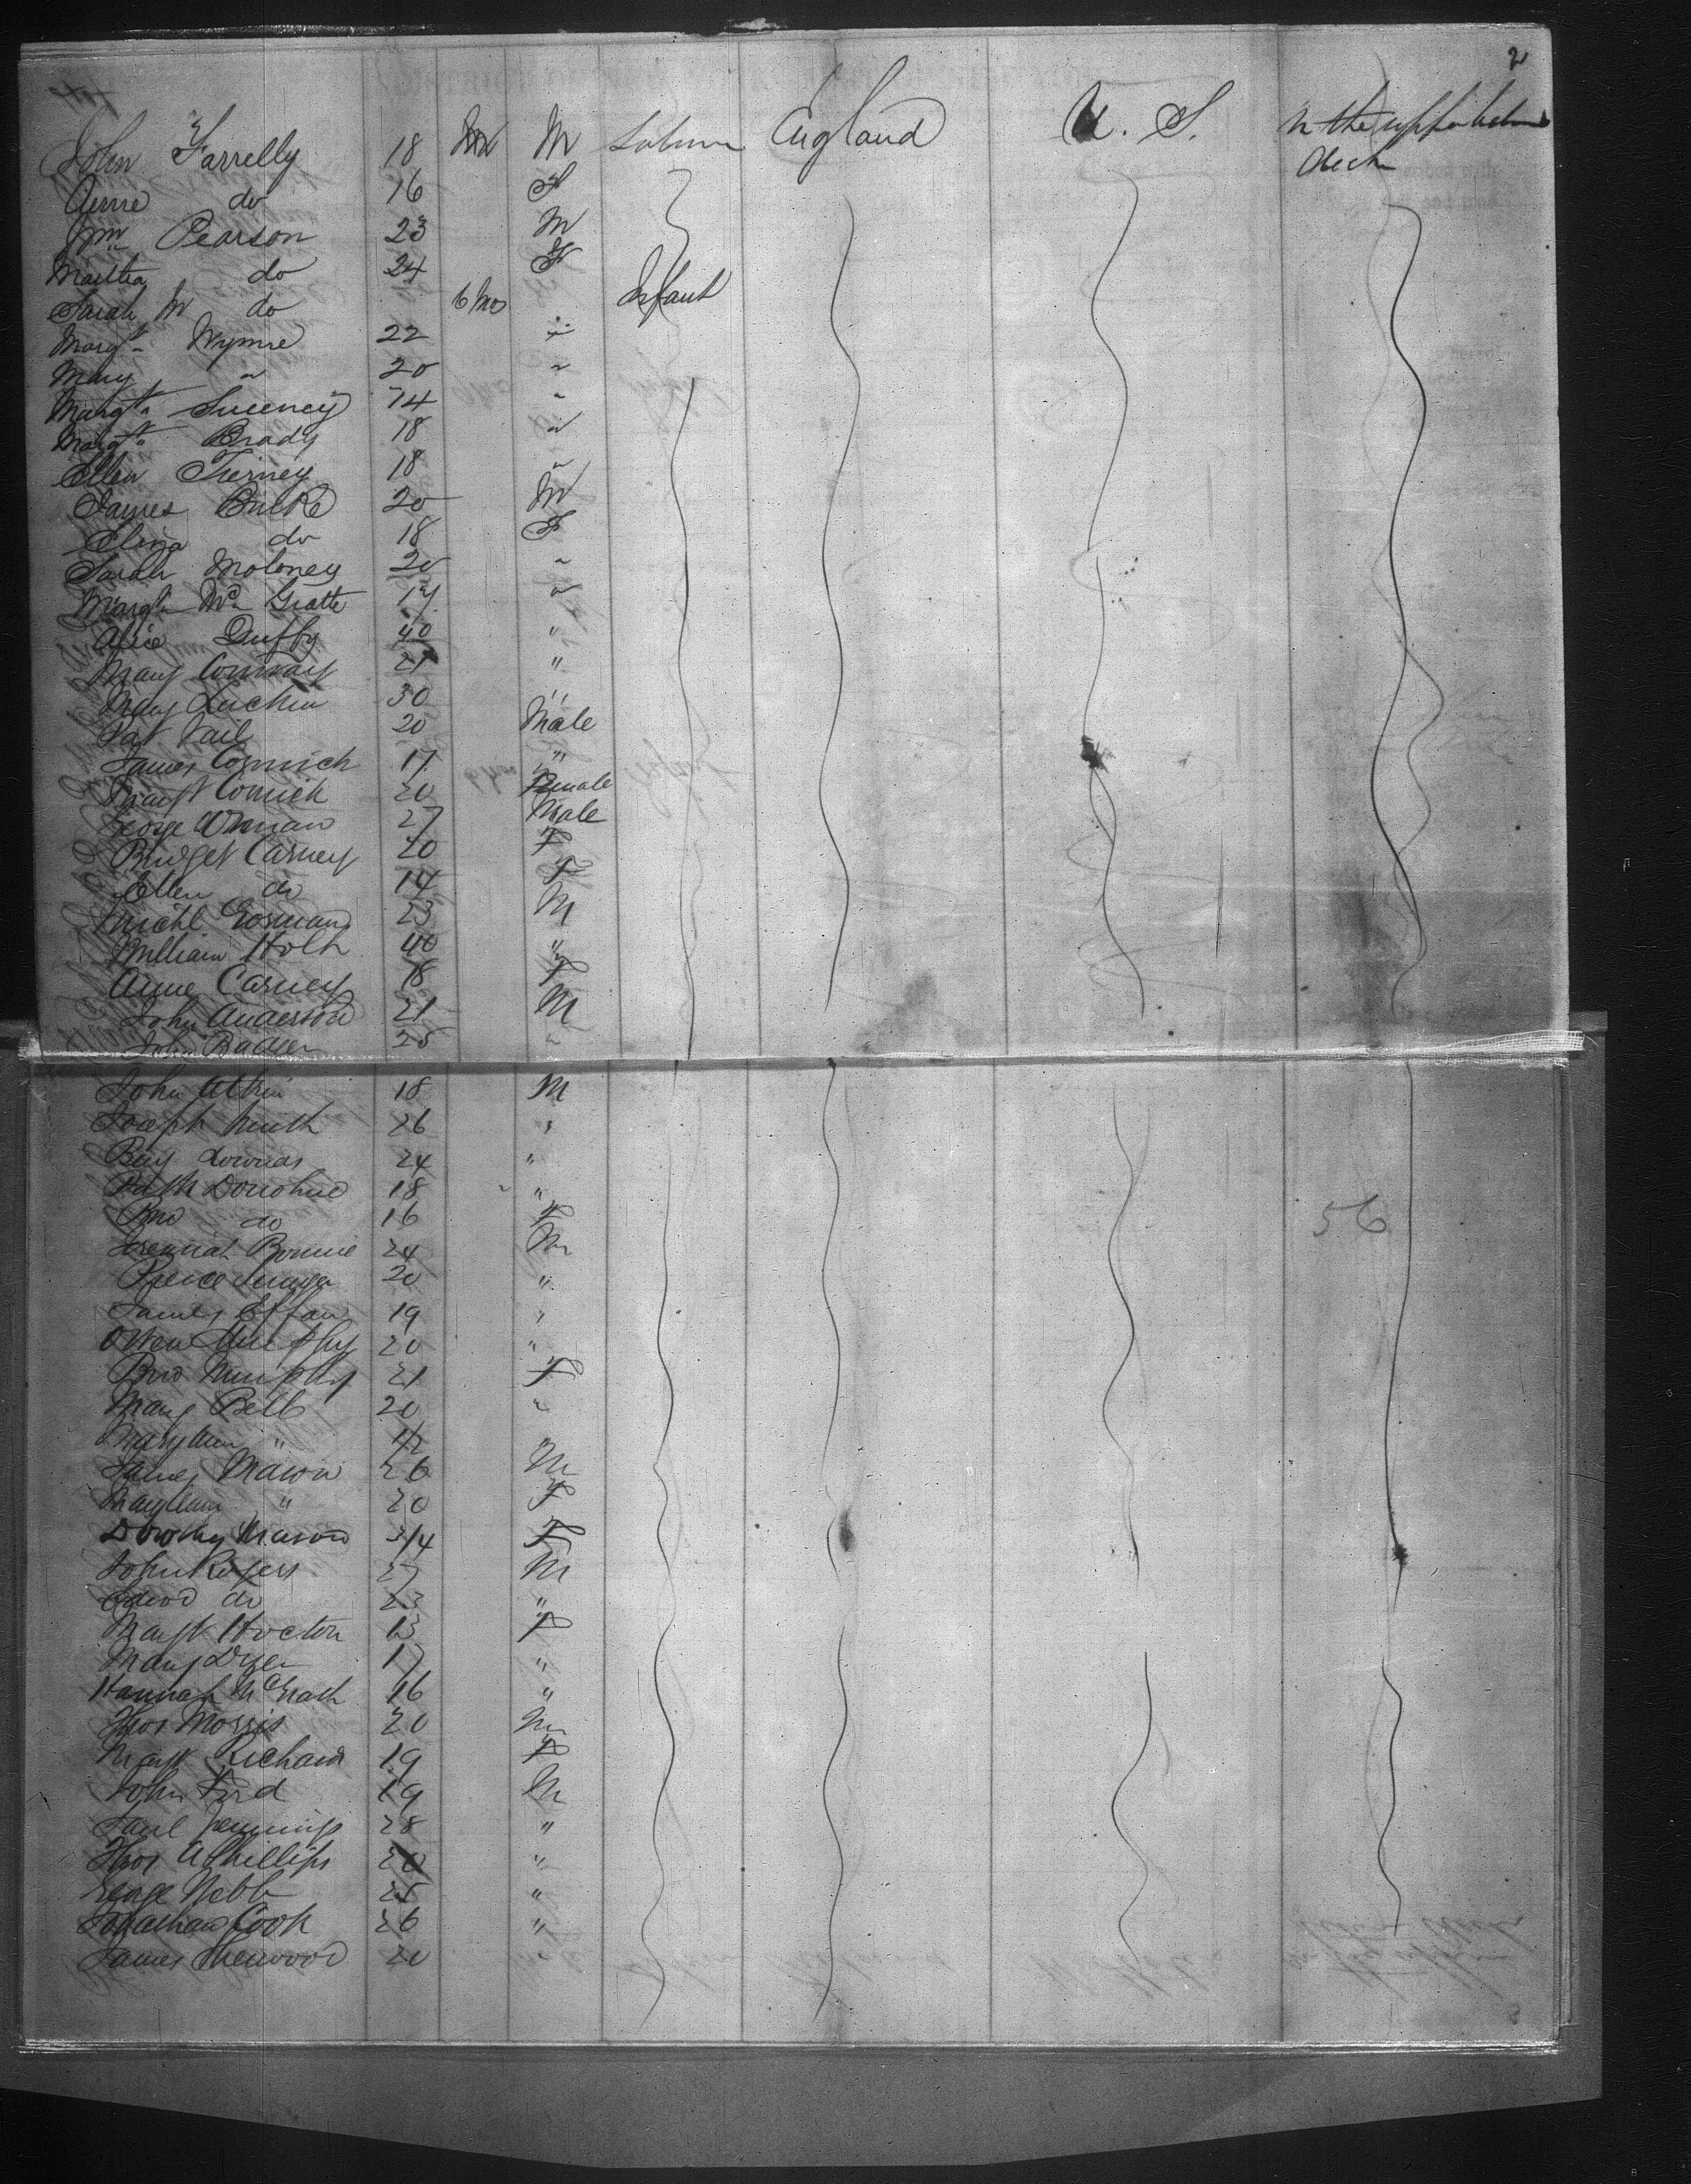 2
John Farrelly 18 M Labourer England U. S. In the upper between
deck
Anne do 16 F
Wm Pearson 23 M
Martha do 24 F
Sarah M do 6 Mos Infant
Margt Wynne 22 "
Mary " 20 "
Margt Sweeney 14 "
Margt Brady 18 "
Ellen Tierney 18 "
James Burke 20 M
Eliza do 18 F
Sarah Moloney 20 "
Margt Mc Gratte 17 "
Alice Duffy 40 "
Mary Conway 21 "
Mary 30 "
Pat 20 Male
James Cormick 17 "
Margt Comick 20 Female
George 27 Male
Bridget Carney 20 F
Ellen do 14 F
Michl Gorman 23 M
William Holt 40 "
Anne Carney 18 F
John Anderson 21 M
John Badger 25 "
John Atkin 18 M
Joseph 26 "
Benj Downes 24 "
Path Donohue 18 "
Brid do 16 F
Jeremiah 24 M
Pierce 20 "
James 19 "
Owen Murphy 20 "
Brid Murphy 21 F
Mary Bell 20 "
Mary Ann " "
James Mason 26 M
Mary Ann " 20 F
Dorothy Mason 3/4 F
John Rogers 27 M
Edwd do 23 "
Margt Hocton 13 F
Mary Dyer 17 "
Hannah McGrath 16 "
Thos Morris 20 M
Margt Richard 19 F
John Ford 19 M
Saml Jennings 28 "
Thos A Phillips "
George Webb 25 "
Jonathan Cook 26 "
James Sherwood 20 "
56